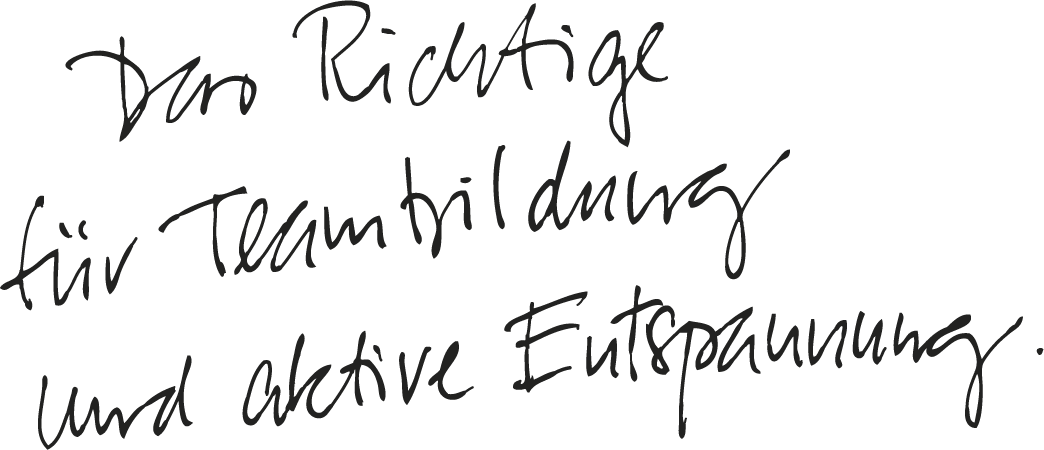 Das Richtige
für Teambildung
und aktive Entspannung.